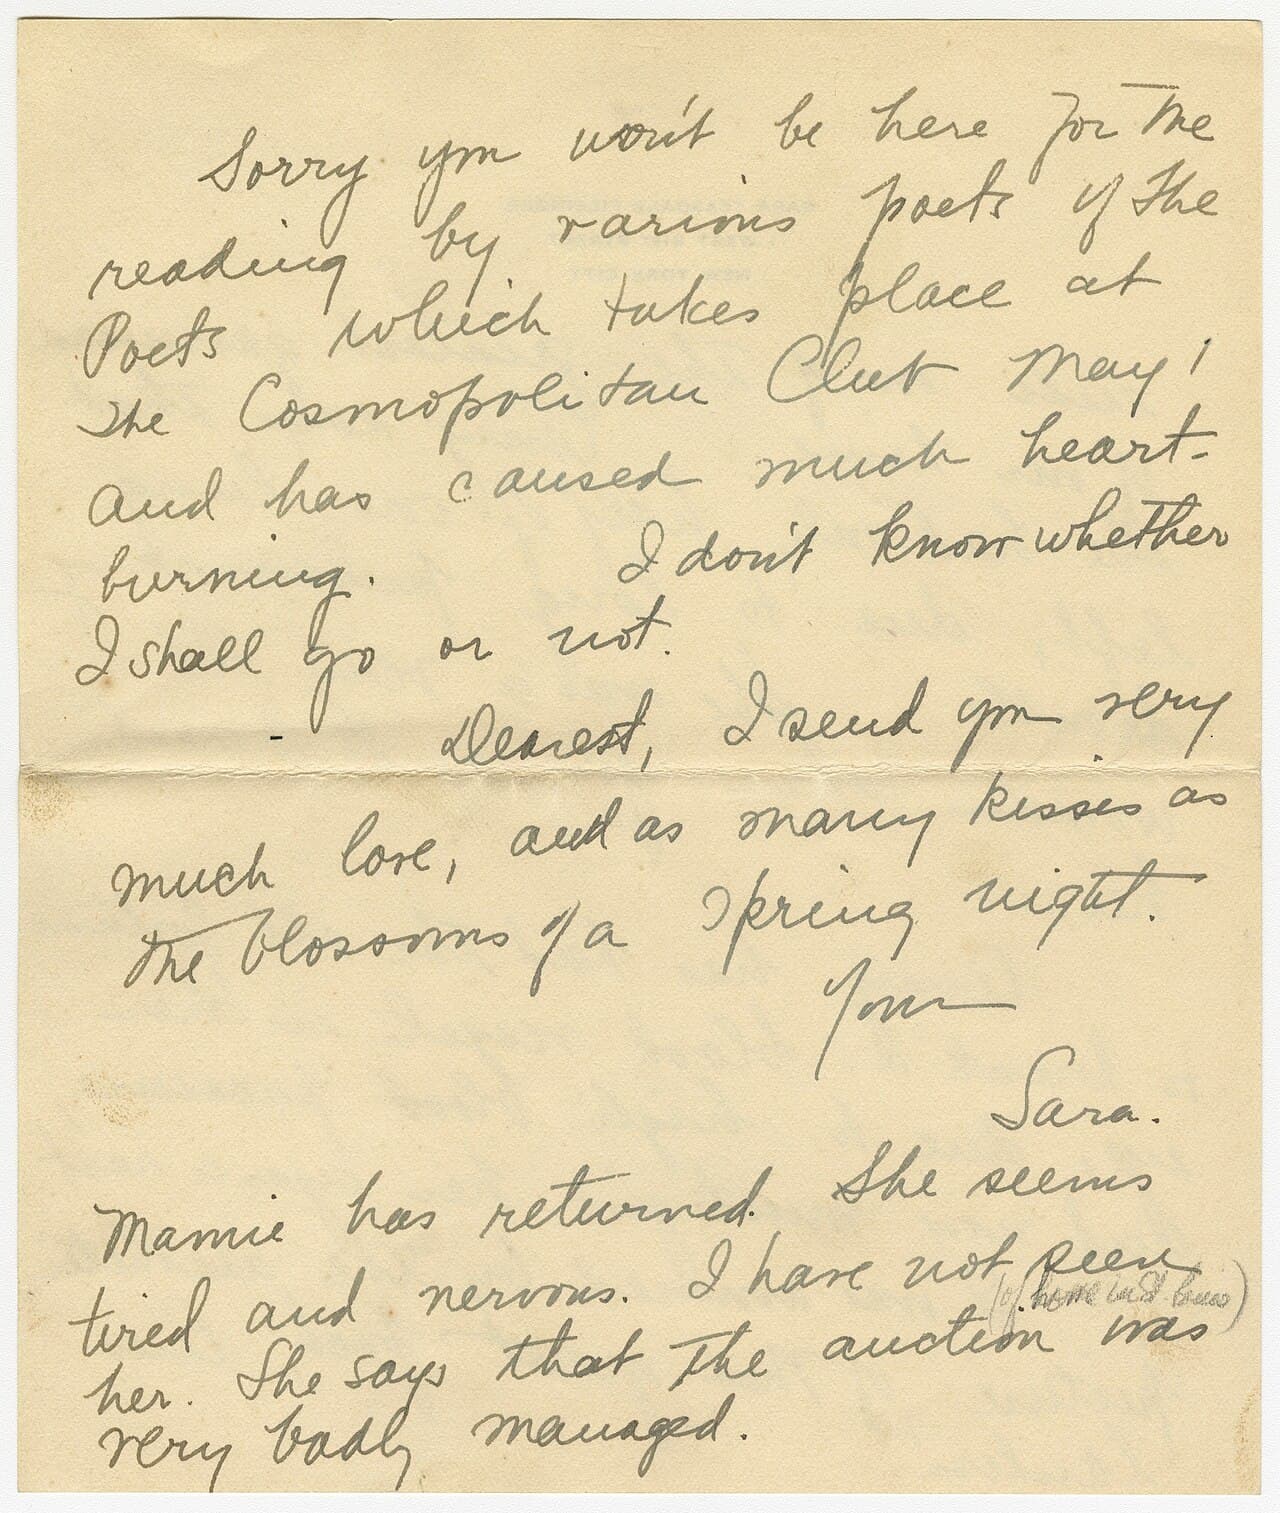 Sorry you won't be here for the
reading by various poets of the
Poets which takes place at
the Cosmopolitan Club May 1
and has caused much heart-
burning. I don't know whether
I shall go or not.
Dearest, I send you very
much love, and as many kisses as
the blossoms of a spring night.
Your
Sara.
Mamie has returned. She seems
tired and nervous. I have not seen
(of home in St Louis)
her. She says that the auction was
very badly managed.